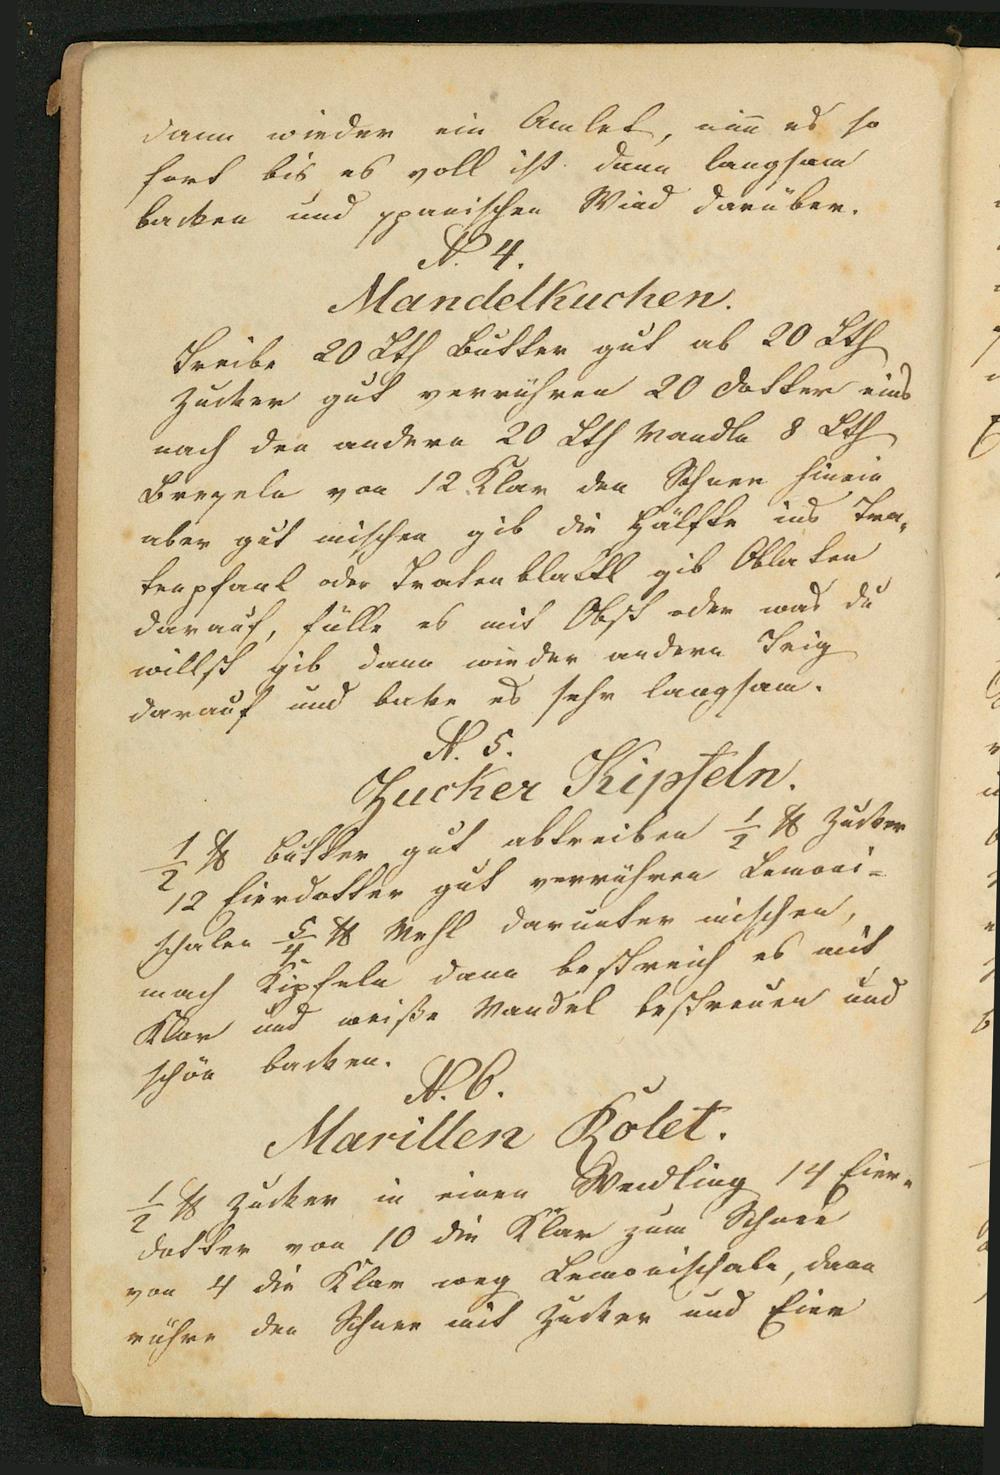 dann wieder ein Amlet, nim̄ es so
fort bis es voll ist dann langsam
backen und spanischen Wind darüber.
N. 4.
Mandelkuchen.
Treibe 20 Lth Butter gut ab 20 Lth
Zucker gut verrühren 20 Dotter eins
nach den andern 20 Lth Mandln 8 Lth
Breseln von 12 Klar den Schnee hinein
aber gut mischen gib die Hälfte ins Tra-
tenpfanl oder Tratenblattl gib Oblaten
darauf, fülle es mit Obst oder was du
willst gib dann wieder andern Teig
darauf und bake es sehr langsam.
N. 5.
Zucker Kipfeln.
1/2 ℔ Butter gut abtreiben 1/2 ℔ Zucker
12 Eierdotter gut verrühren Lemoni-
schalen 5/4 ℔ Mehl darunter mischen,
mach Kipfeln dann bestreich es mit
Klar und weiße Mandel bestreuen und
schön backen.
N. 6.
Marillen Kolet.
1/2 ℔ Zucker in einen Weidling 14 Eier-
dotter von 10 die Klar zum Schnee
von 4 die Klar weg Lemonischale, dann
rühre den Schnee mit Zucker und Eier